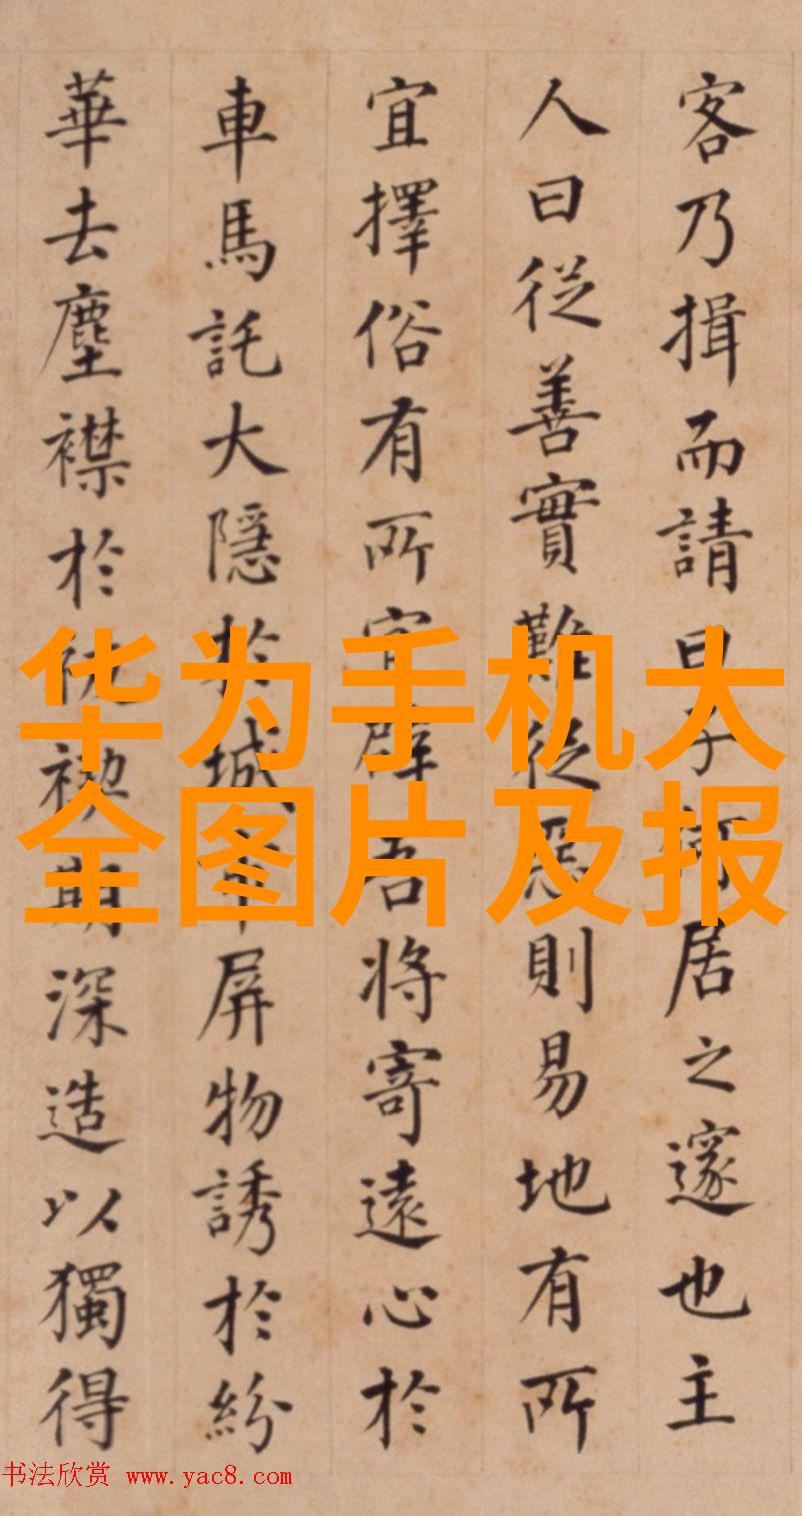 客乃揖而請曰子居之邃也主
人曰從善實難從惡則易地有所
宜擇俗有所宜辟吾將寄遠心於
車馬託大隱於城市屏物誘於紛
華去塵襟於禊期深造以獨得
华为手机大
全图片及报
书法欣赏 www.yac8.com